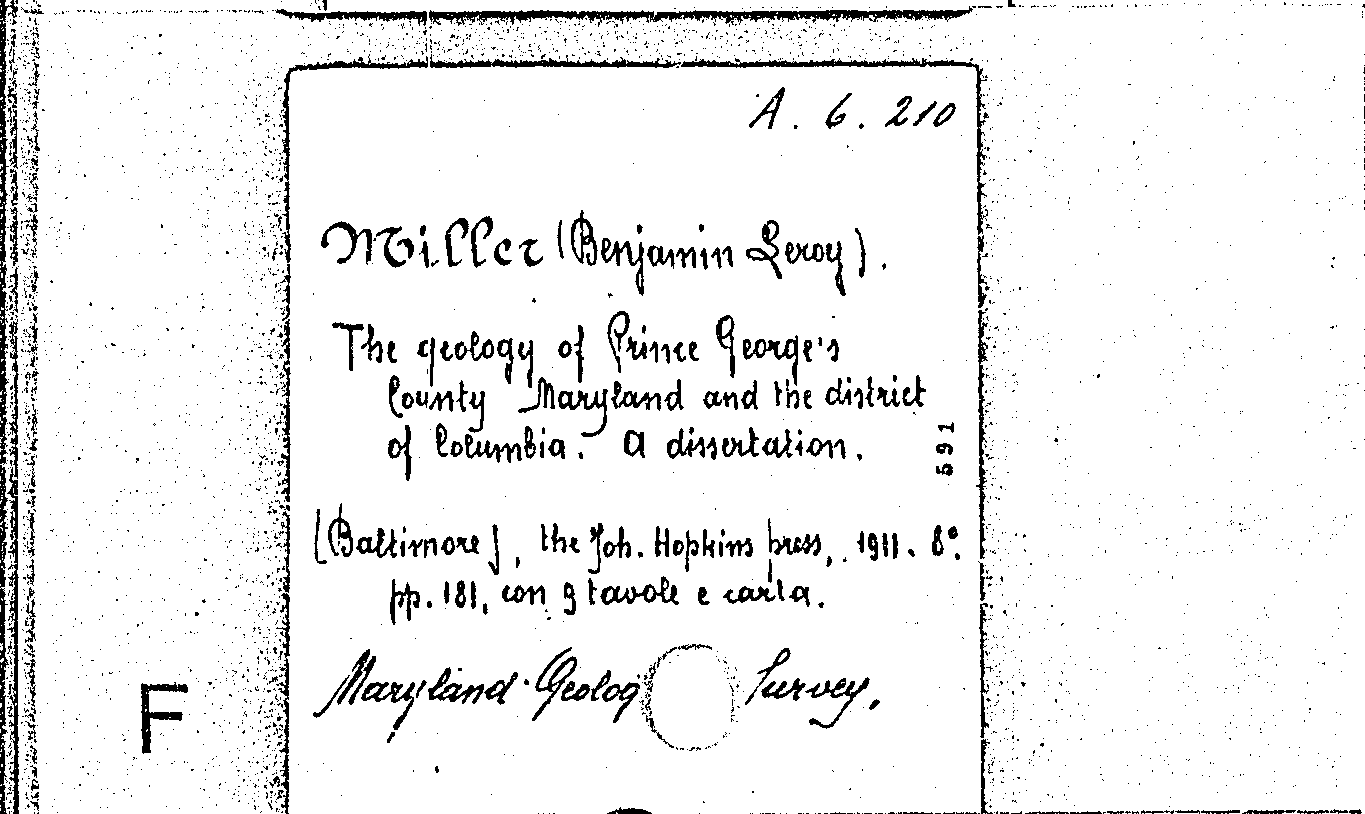 A. 6. 210
Miller (Benjamin Leroy).
The geology of Prince George's
County Maryland and the district
of Columbia. A dissertation.
591
[Baltimore], the Joh. Hopkins press, 1911. 8°.
pp. 181, con 9 tavole e carta.
Maryland Geolog Survey.
F